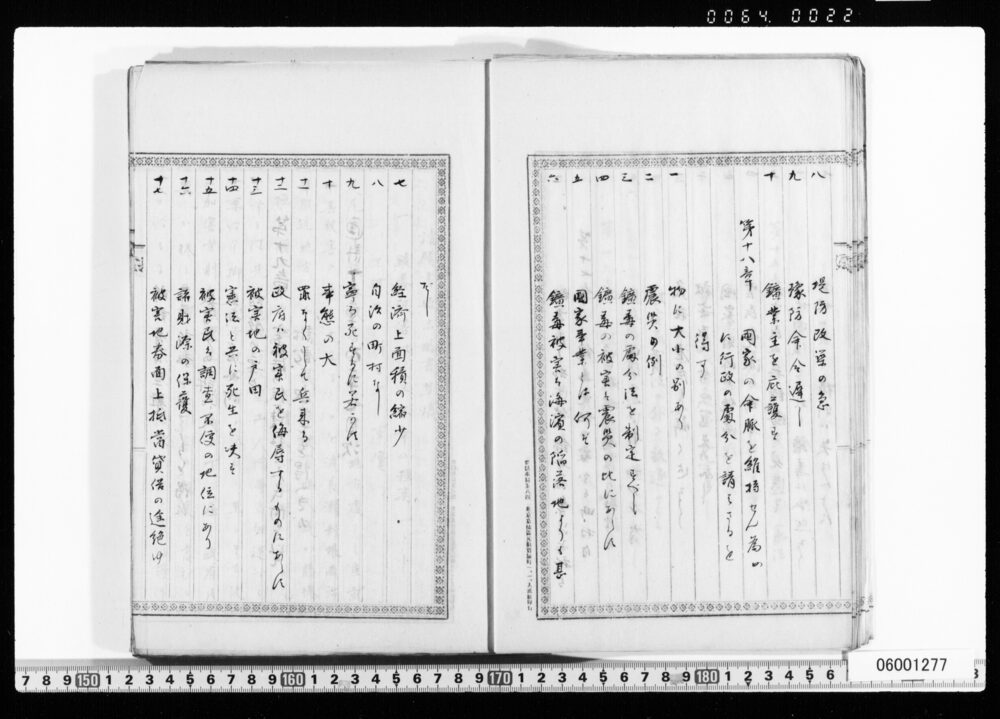 0064 0022
八 堤防改築の急
九 豫防命令遅し
十 鑛業主を庇護す
第十八章 国家の命脈を維持せん為め
に行政の處分を請はざるを
得ず
一 物に大小の別あり
二 震災の例
三 鑛毒の處分法を制定すべし
四 鑛毒の被害は震災の比にあらに
五 国家事業とは何ぞ
六 鑛毒被害は海濱の陥落地よりも甚
だし
七 経済上面積の縮少
八 自治の町村なし
九 寧ろ死するに若かに
十 事態の大
十一 罪なくして兵来る
十二 政府は被害民を侮辱するものにあらに
十三 被害地の戸田
十四 憲法と共に死生を决す
十五 被害民は調査不便の地位にあり
十六 諸財源の保護
十七 被害地券面上抵當貸借の途絶ゆ
06001277
7 8 9 150 1 2 3 4 5 6 7 8 9 160 1 2 3 4 5 6 7 8 9 170 1 2 3 4 5 6 7 8 9 180 1 2 3 4 5 6